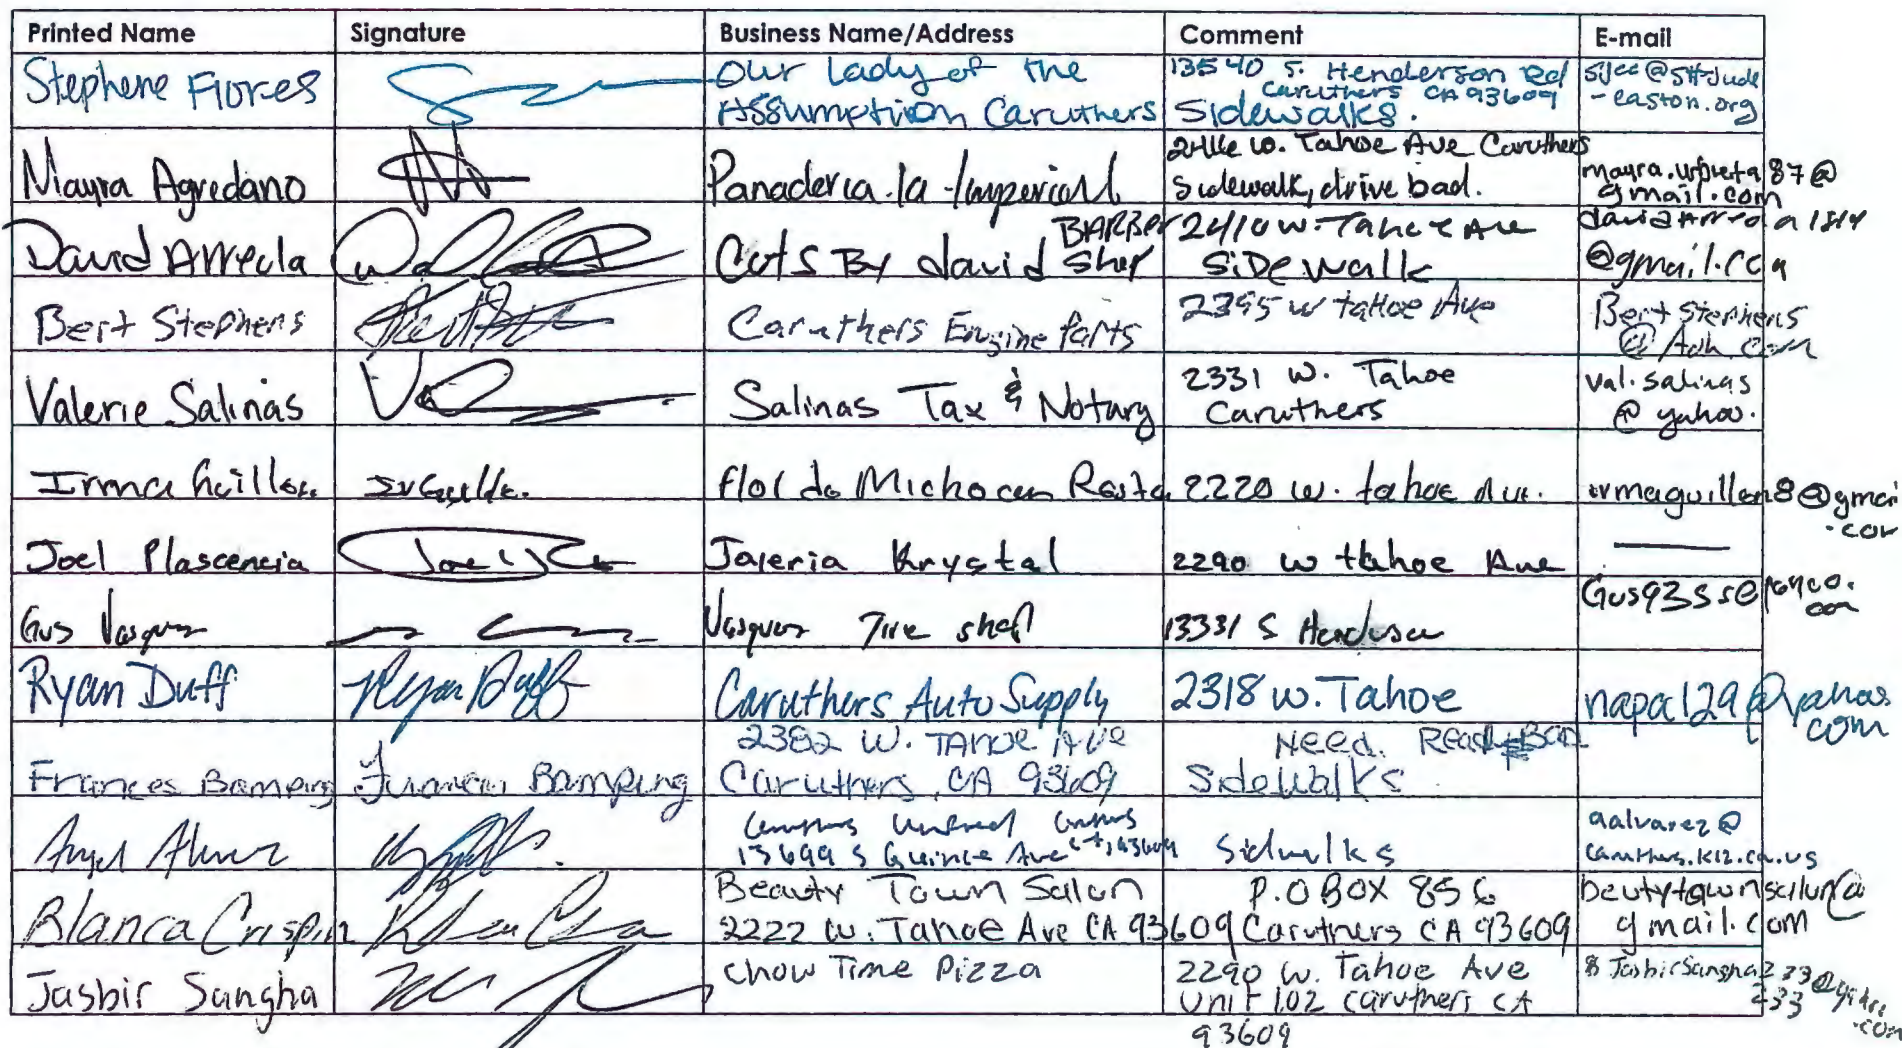 Printed Name Signature Business Name/Address Comment E-mail
Stephene Flores Our Lady of the Assumption Caruthers 13540 S. Henderson Rd Caruthers CA 93609 Sidewalks. sjcc@stjude-easton.org
Mayra Agredano Panaderia la Imperial 2416 W. Tahoe Ave Caruthers sidewalk, drive bad. 87@gmail.com
David Arreola Cuts By david BARBER Shop 2410 W. Tahoe Ave SiDe walk @gmail.
Bert Stephens Caruthers Engine Parts 2395 W tahoe Ave Bert Stephens
Valerie Salinas Salinas Tax & Notary 2331 W. Tahoe Caruthers val.salinas @ yahoo.
Irma Guillen flor de Michocan 2220 W. tahoe Ave. irmaguillen8@gmai .com
Joel Plascencia Joel Joyeria Krystal 2290 W tahoe Ave
Gus Vasquez Vasquez Tire shop 13331 S Henderson
Ryan Duff Ryan Duff Caruthers Auto Supply 2318 W. Tahoe napa129@yahoo com
Frances Bamping Frances Bamping 2382 W. TAHOE AVE Caruthers, CA 93609 Need. Sidewalks
Angel Alvarez Caruthers Unified 13699 S Quince Ave Sidwalks aalvarez@ caruthers.k12.ca.us
Blanca Crispin Beauty Town Salon 2222 W. Tahoe Ave CA 93609 P.O BOX 856 Caruthers CA 93609 beutytownsalun@ gmail.com
Jasbir Sangha Chow Time Pizza 2290 W. Tahoe Ave Unit 102 Caruthers CA 93609 JasbirSangha233@yahoo .com